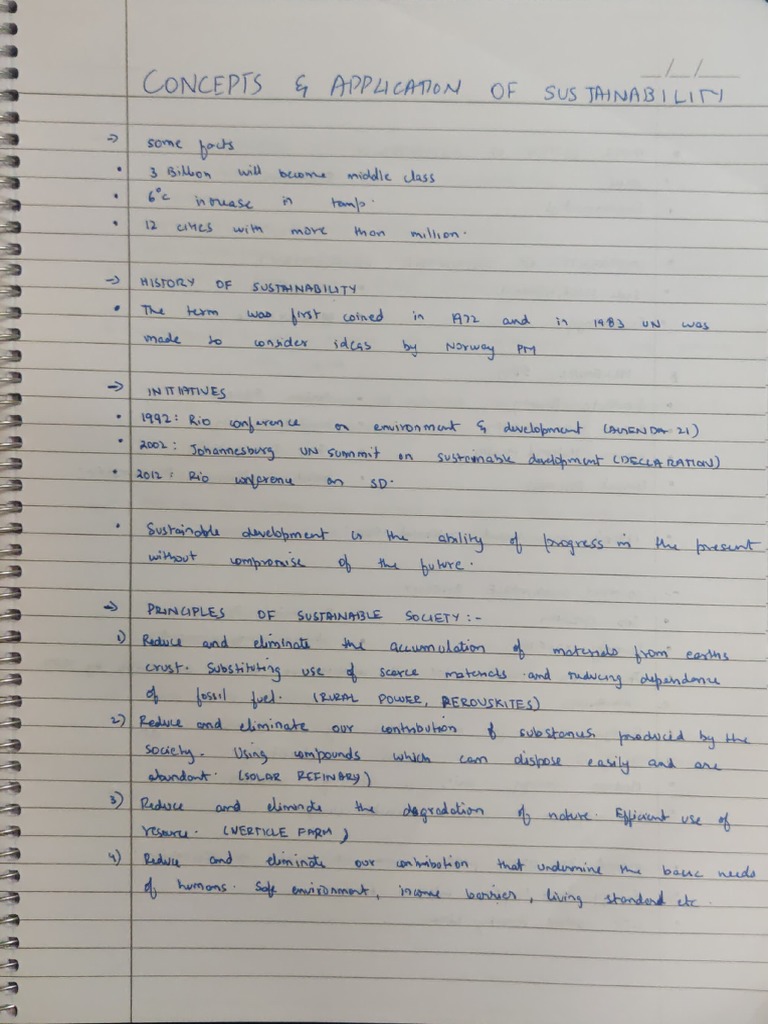 CONCEPTS & APPLICATION OF SUSTAINABILITY
→ some facts
• 3 Billion will become middle class
• 6°C increase in temp.
• 12 cities with more than million.
→ HISTORY OF SUSTAINABILITY
• The term was first coined in 1972 and in 1983 UN was
made to consider ideas by Norway PM
→ INITIATIVES
• 1992: Rio conference on environment & development (AGENDA 21)
• 2002: Johannesburg UN summit on sustainable development (DECLARATION)
• 2012: Rio conference on SD.
• Sustainable development is the ability of progress in the present
without compromise of the future.
→ PRINCIPLES OF SUSTAINABLE SOCIETY :-
1) Reduce and eliminate the accumulation of materials from earths
crust. Substituting use of scarce materials and reducing dependence
of fossil fuel. (RURAL POWER, PEROVSKITES)
2) Reduce and eliminate our contribution of substances produced by the
society. Using compounds which can dispose easily and are
abundant. (SOLAR REFINARY)
3) Reduce and eliminate the degradation of nature. Efficient use of
resource. (VERTICLE FARM)
4) Reduce and eliminate our contribution that undermine the basic needs
of humans. Safe environment, income barrier, living standard etc.